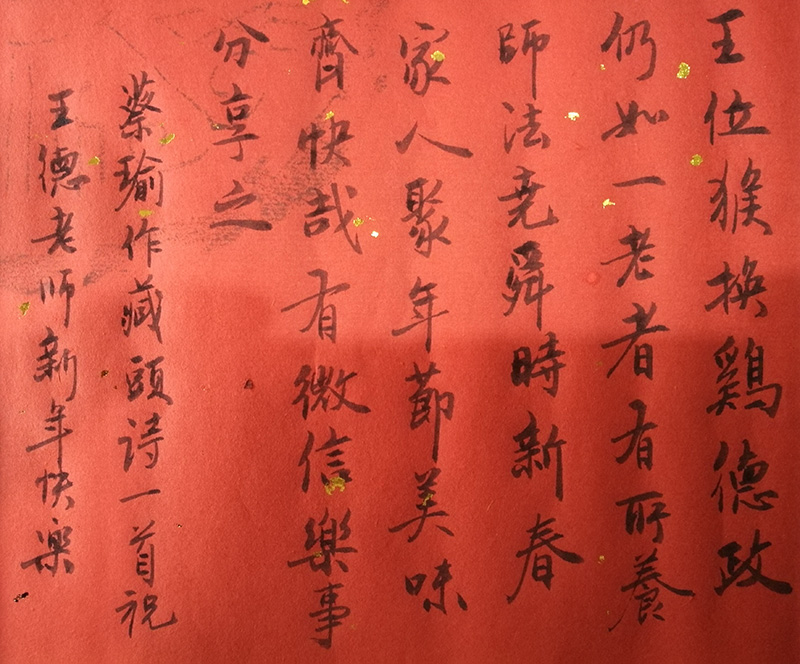 王位猴換鷄德政
仍如一老者有所養
師法堯舜時新春
家人聚年節美味
齊快哉有微信樂事
分享之
蔡瑜作藏頭诗一首祝
王德老师新年快樂